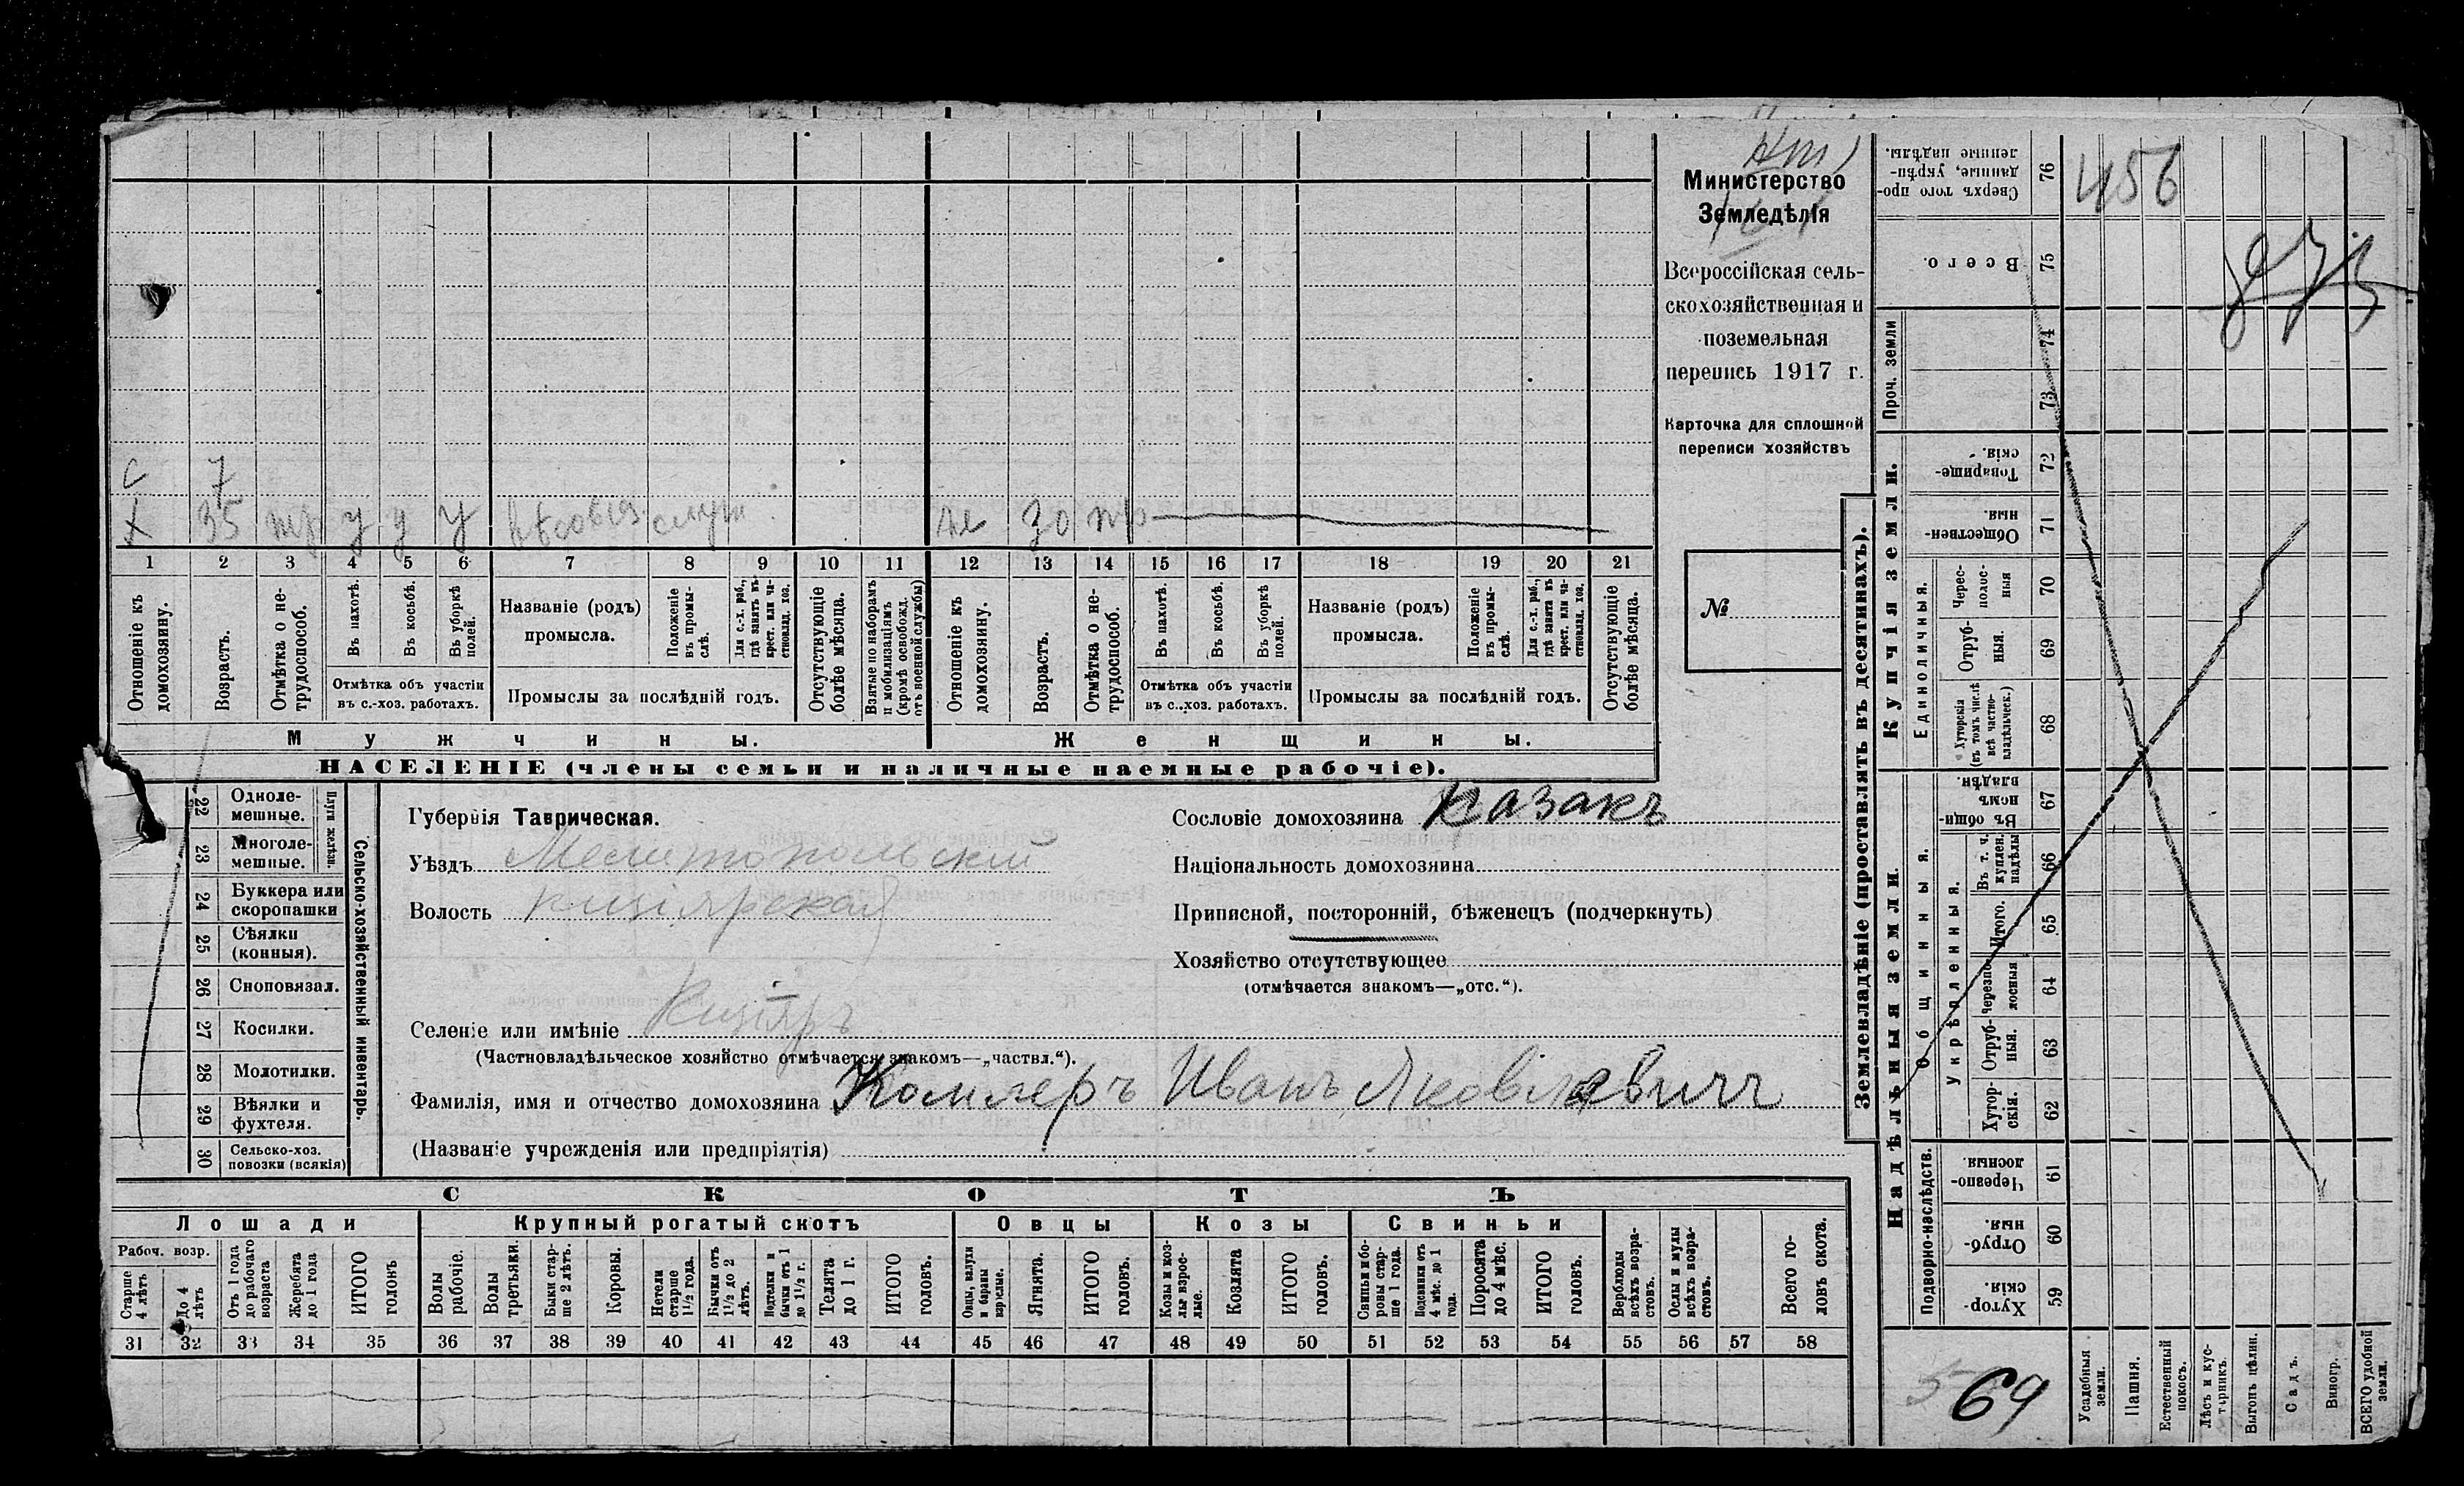 Министерство
Земледѣлія
Всероссійская сель-
скохозяйственная и
поземельная
перепись 1917 г.
Карточка для сплошной
переписи хозяйствъ
№
с 7
х 35 тр у у у вѣсовщ. служ.
ж 30 тр
1 2 3 4 5 6 7 8 9 10 11 12 13 14 15 16 17 18 19 20 21
Отношеніе къ домохозяину.
Возрастъ.
Отмѣтка о не-трудоспособ.
Въ пахотѣ.
Въ косьбѣ.
Въ уборкѣ полей.
Отмѣтка объ участіи
въ с.-хоз. работахъ.
Названіе (родъ)
промысла.
Положеніе въ промы-слѣ.
Для с.-х. раб., гдѣ занятъ въ крест. или ча-стновлад. хоз.
Промыслы за послѣдній годъ.
Отсутствующіе болѣе мѣсяца.
Взятые по наборамъ и мобилизаціямъ (кромѣ освобожд. отъ военной службы)
Отношеніе къ домохозяину.
Возрастъ.
Отмѣтка о не-трудоспособ.
Въ пахотѣ.
Въ косьбѣ.
Въ уборкѣ полей.
Отмѣтка объ участіи
въ с.-хоз. работахъ.
Названіе (родъ)
промысла.
Положеніе въ промы-слѣ.
Для с.-х. раб., гдѣ занята въ крест. или ча-стновлад. хоз.
Промыслы за послѣдній годъ.
Отсутствующіе болѣе мѣсяца.
Мужчины.
Женщины.
НАСЕЛЕНІЕ (члены семьи и наличные наемные рабочіе).
Сельско-хозяйственный инвентарь.
Плуги желѣзн.
22 Одноле-мешные.
23 Многоле-мешные.
24 Буккера или скоропашки
25 Сѣялки (конныя).
26 Сноповязал.
27 Косилки.
28 Молотилки.
29 Вѣялки и фухтеля.
30 Сельско-хоз. повозки (всякія)
Губернія Таврическая.
Уѣздъ Мелитопольскій
Волость Кизіярская
Селеніе или имѣніе Кизіяръ
(Частновладѣльческое хозяйство отмѣчается знакомъ—„частвл.“).
Фамилія, имя и отчество домохозяина Комлеръ Иванъ Яковлевичъ
(Названіе учрежденія или предпріятія)
Сословіе домохозяина казакъ
Національность домохозяина
Приписной, посторонній, бѣженецъ (подчеркнуть)
Хозяйство отсутствующее
(отмѣчается знакомъ—„отс.“).
СКОТЪ
Лошади
Рабоч. возр.
Старше 4 лѣтъ
До 4 лѣтъ
Отъ 1 года до рабочаго возраста
Жеребята до 1 года
ИТОГО головъ
Крупный рогатый скотъ
Волы рабочіе.
Волы третьяки.
Быки стар-ше 2 лѣтъ.
Коровы.
Нетели старше 1½ года.
Бычки отъ 1½ до 2 лѣтъ.
Подтелки и бычки отъ 1 до 1½ г.
Телята до 1 г.
ИТОГО головъ.
Овцы
Овцы, валухи и бараны взрослые.
Ягнята.
ИТОГО головъ.
Козы
Козы и коз-лы взрос-лые.
Козлята
ИТОГО головъ.
Свиньи
Свиньи и бо-ровы стар-ше 1 года.
Подсвинки отъ 4 мѣс. до 1 года.
Поросята до 4 мѣс.
ИТОГО головъ.
Верблюды всѣхъ возра-стовъ.
Ослы и мулы всѣхъ возра-стовъ.
Всего го-ловъ скота.
31 32 33 34 35 36 37 38 39 40 41 42 43 44 45 46 47 48 49 50 51 52 53 54 55 56 57 58
Землевладѣніе (проставлять въ десятинахъ).
Надѣльныя земли.
Купчія земли.
Проч. земли
Подворно-наслѣдств.
Общинныя.
Укрѣпленныя.
Единоличныя.
76 Сверхъ того про-данные, укрѣп-ленные надѣлы.
75 Всего.
74
73
72 Товарище-скія.
71 Обществен-ныя.
70 Черес-полос-ныя
69 Отруб-ныя.
68 Хуторскія (въ томъ числѣ всѣ частно-владѣльческ.)
67 Въ общи-номъ владѣн.
66 Въ т. ч. куплен. надѣлы
65 Итого.
64 Черезпо-лосныя
63 Отруб-ныя.
62 Хутор-скія.
61 Черезпо-лосныя.
60 Отруб-ныя.
59 Хутор-скія.
Усадебныя земли.
Пашня.
Естественный покосъ.
Лѣсъ и кус-тарникъ.
Выгонъ цѣлин.
Садъ.
Виногр.
ВСЕГО удобной земли.
456
69